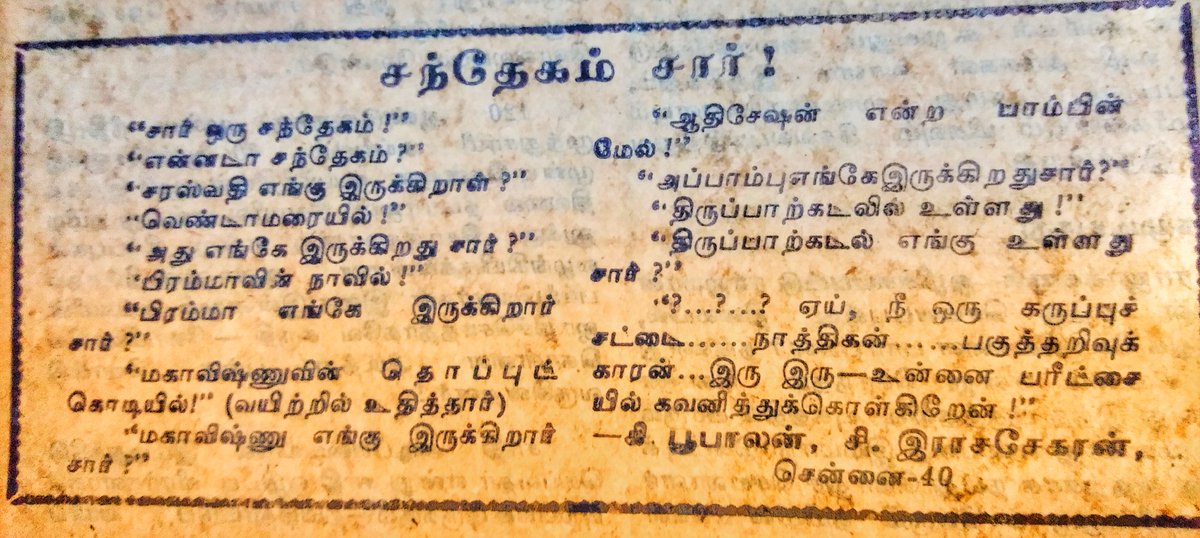 சந்தேகம் சார்!
“சார் ஒரு சந்தேகம்!”
“என்னடா சந்தேகம்?”
“சரஸ்வதி எங்கு இருக்கிறாள்?”
“வெண்டாமரையில்!”
“அது எங்கே இருக்கிறது சார்?”
“பிரம்மாவின் நாவில்!”
“பிரம்மா எங்கே இருக்கிறார்
சார்?”
“மகாவிஷ்ணுவின் தொப்புட்
கொடியில்!” (வயிற்றில் உதித்தார்)
“மகாவிஷ்ணு எங்கு இருக்கிறார்
சார்?”
“ஆதிசேஷன் என்ற பாம்பின்
மேல்!”
“அப்பாம்புஎங்கேஇருக்கிறதுசார்?”
“திருப்பாற்கடலில் உள்ளது!”
“திருப்பாற்கடல் எங்கு உள்ளது
சார்?”
“?...?...? ஏய், நீ ஒரு கருப்புச்
சட்டை.......நாத்திகன்......பகுத்தறிவுக்
காரன்...இரு இரு—உன்னை பரீட்சை
யில் கவனித்துக்கொள்கிறேன்!”
—கி. பூபாலன், சி. இராசசேகரன்,
சென்னை-40